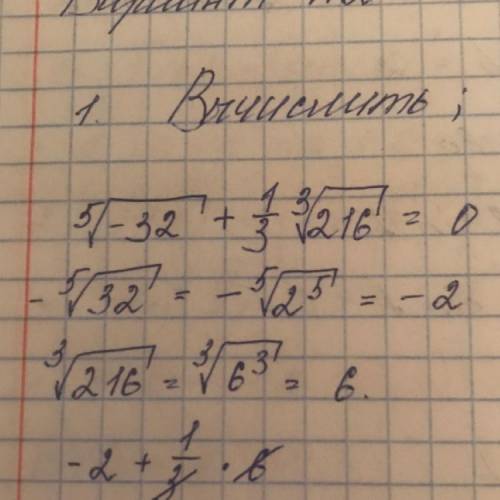 Вариант
1. Вычислить;
⁵√-32 + 1/3 ³√216 = 0
-⁵√32 = -⁵√2⁵ = -2
³√216 = ³√6³ = 6.
-2 + 1/3 · 6